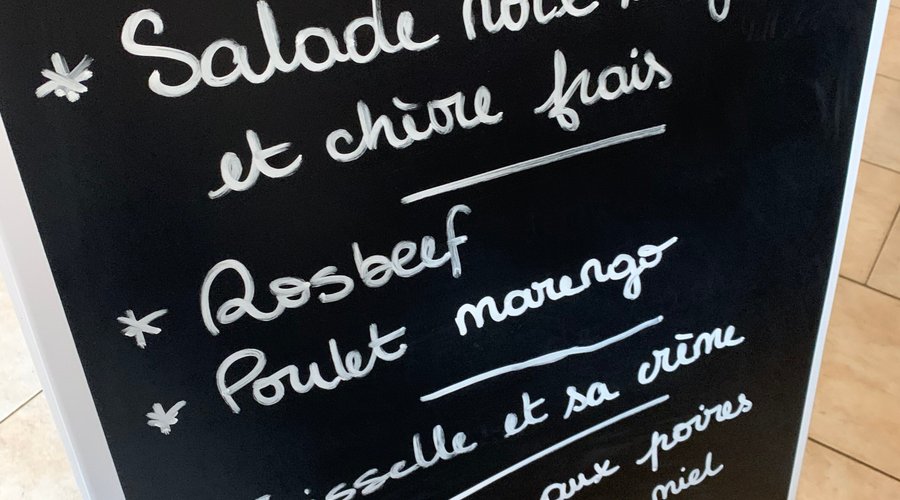 * Salade noix
et chèvre frais
* Rosbeef
* Poulet marengo
et sa crème
aux poires
miel